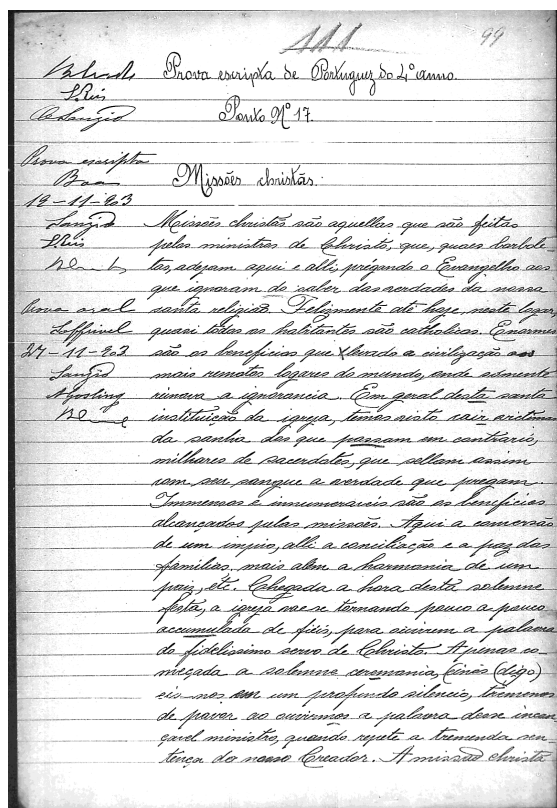 111 99
Prova escripta de Portuguez do 4º anno.
S. Reis
Sanzio
Ponto Nº 17.
Prova escripta
Boa
19-11-903
Missões christãs.
Sanzio
S. Reis
Prova oral
Soffrivel
27-11-903
Sanzio
Agostinho
Missões christãs são aquellas que são feitas
pelos ministros de Christo, que, quaes borbole-
tas, adejam aqui e alli, prégando o Evangelho aos
que ignoram do saber das verdades da nossa
santa religião. Felizmente até hoje, neste logar,
quasi todos os habitantes são catholicos. Enormes
são os beneficios que levado a civilização aos
mais remotos logares do mundo, onde sómente
reinava a ignorancia. Em geral desta santa
instituição da igreja, temos visto cair victimas
da sanha dos que passam em contrario,
milhares de sacerdotes, que sellam assim
com seu sangue a verdade que pregam.
Immensos e innumeraveis são os beneficios
alcançados pelas missões. Aqui a conversão
de um impio, alli a conciliação e a paz das
familias, mais alem a harmonia de um
paiz, etc. Chegada a hora desta solemne
festa, a igreja vae se tornando pouco a pouco
accumulada de fieis, para ouvirem a palavra
do fidelissimo servo de Christo. Apenas co-
meçada a solemne ceremonia, (digo)
eis-nos em um profundo silencio, trememos
de pavor ao ouvirmos a palavra desse incan-
çavel ministro, quando repete a tremenda sen-
tença do nosso Creador. A missão christã